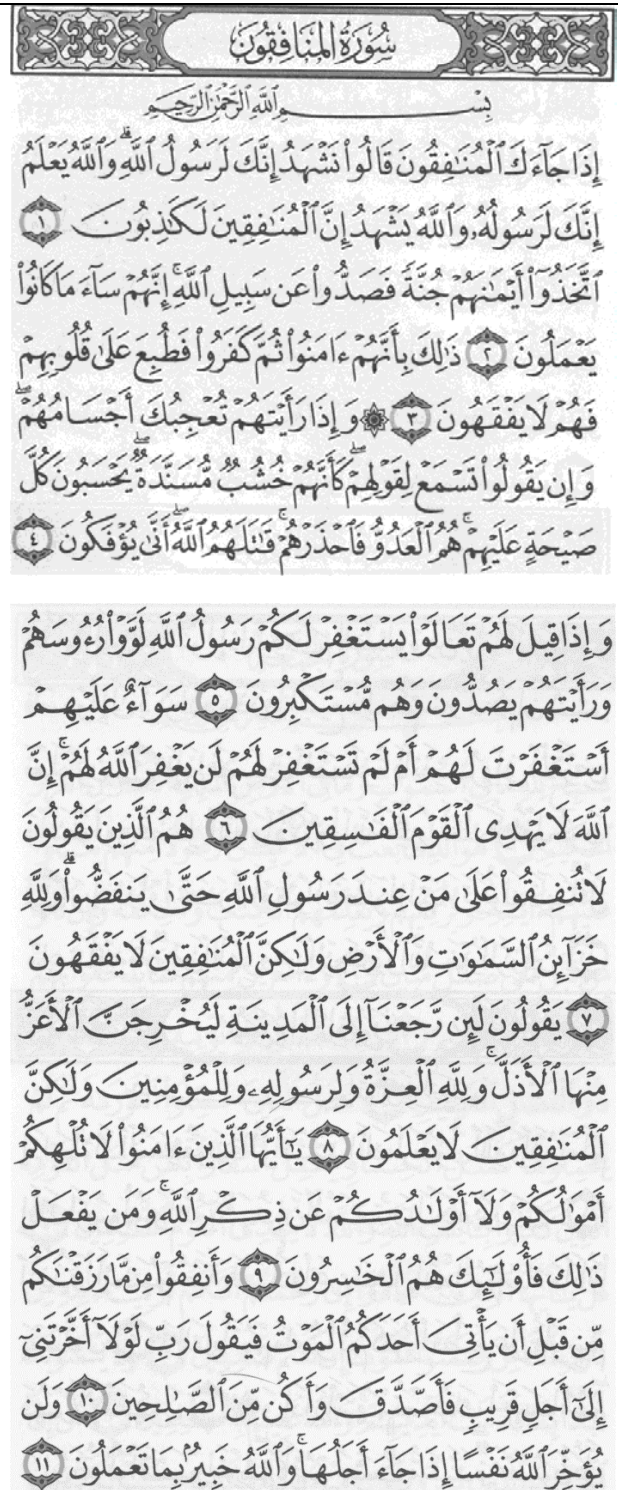 سُورَةُ المُنَافِقُون
بِسْمِ ٱللَّهِ ٱلرَّحْمَٰنِ ٱلرَّحِيمِ
إِذَا جَآءَكَ ٱلْمُنَٰفِقُونَ قَالُوا۟ نَشْهَدُ إِنَّكَ لَرَسُولُ ٱللَّهِ ۗ وَٱللَّهُ يَعْلَمُ
إِنَّكَ لَرَسُولُهُۥ وَٱللَّهُ يَشْهَدُ إِنَّ ٱلْمُنَٰفِقِينَ لَكَٰذِبُونَ ١
ٱتَّخَذُوٓا۟ أَيْمَٰنَهُمْ جُنَّةً فَصَدُّوا۟ عَن سَبِيلِ ٱللَّهِ ۚ إِنَّهُمْ سَآءَ مَا كَانُوا۟
يَعْمَلُونَ ٢ ذَٰلِكَ بِأَنَّهُمْ ءَامَنُوا۟ ثُمَّ كَفَرُوا۟ فَطُبِعَ عَلَىٰ قُلُوبِهِمْ
فَهُمْ لَا يَفْقَهُونَ ٣ ۞ وَإِذَا رَأَيْتَهُمْ تُعْجِبُكَ أَجْسَامُهُمْ ۖ
وَإِن يَقُولُوا۟ تَسْمَعْ لِقَوْلِهِمْ ۖ كَأَنَّهُمْ خُشُبٌ مُّسَنَّدَةٌ ۖ يَحْسَبُونَ كُلَّ
صَيْحَةٍ عَلَيْهِمْ ۚ هُمُ ٱلْعَدُوُّ فَٱحْذَرْهُمْ ۚ قَٰتَلَهُمُ ٱللَّهُ ۖ أَنَّىٰ يُؤْفَكُونَ ٤
وَإِذَا قِيلَ لَهُمْ تَعَالَوْا۟ يَسْتَغْفِرْ لَكُمْ رَسُولُ ٱللَّهِ لَوَّوْا۟ رُءُوسَهُمْ
وَرَأَيْتَهُمْ يَصُدُّونَ وَهُم مُّسْتَكْبِرُونَ ٥ سَوَآءٌ عَلَيْهِمْ
أَسْتَغْفَرْتَ لَهُمْ أَمْ لَمْ تَسْتَغْفِرْ لَهُمْ لَن يَغْفِرَ ٱللَّهُ لَهُمْ ۚ إِنَّ
ٱللَّهَ لَا يَهْدِى ٱلْقَوْمَ ٱلْفَٰسِقِينَ ٦ هُمُ ٱلَّذِينَ يَقُولُونَ
لَا تُنفِقُوا۟ عَلَىٰ مَنْ عِندَ رَسُولِ ٱللَّهِ حَتَّىٰ يَنفَضُّوا۟ ۗ وَلِلَّهِ
خَزَآئِنُ ٱلسَّمَٰوَٰتِ وَٱلْأَرْضِ وَلَٰكِنَّ ٱلْمُنَٰفِقِينَ لَا يَفْقَهُونَ
٧ يَقُولُونَ لَئِن رَّجَعْنَآ إِلَى ٱلْمَدِينَةِ لَيُخْرِجَنَّ ٱلْأَعَزُّ
مِنْهَا ٱلْأَذَلَّ ۚ وَلِلَّهِ ٱلْعِزَّةُ وَلِرَسُولِهِۦ وَلِلْمُؤْمِنِينَ وَلَٰكِنَّ
ٱلْمُنَٰفِقِينَ لَا يَعْلَمُونَ ٨ يَٰٓأَيُّهَا ٱلَّذِينَ ءَامَنُوا۟ لَا تُلْهِكُمْ
أَمْوَٰلُكُمْ وَلَآ أَوْلَٰدُكُمْ عَن ذِكْرِ ٱللَّهِ ۚ وَمَن يَفْعَلْ
ذَٰلِكَ فَأُو۟لَٰٓئِكَ هُمُ ٱلْخَٰسِرُونَ ٩ وَأَنفِقُوا۟ مِن مَّا رَزَقْنَٰكُم
مِّن قَبْلِ أَن يَأْتِىَ أَحَدَكُمُ ٱلْمَوْتُ فَيَقُولَ رَبِّ لَوْلَآ أَخَّرْتَنِىٓ
إِلَىٰٓ أَجَلٍ قَرِيبٍ فَأَصَّدَّقَ وَأَكُن مِّنَ ٱلصَّٰلِحِينَ ١٠ وَلَن
يُؤَخِّرَ ٱللَّهُ نَفْسًا إِذَا جَآءَ أَجَلُهَا ۚ وَٱللَّهُ خَبِيرٌۢ بِمَا تَعْمَلُونَ ١١